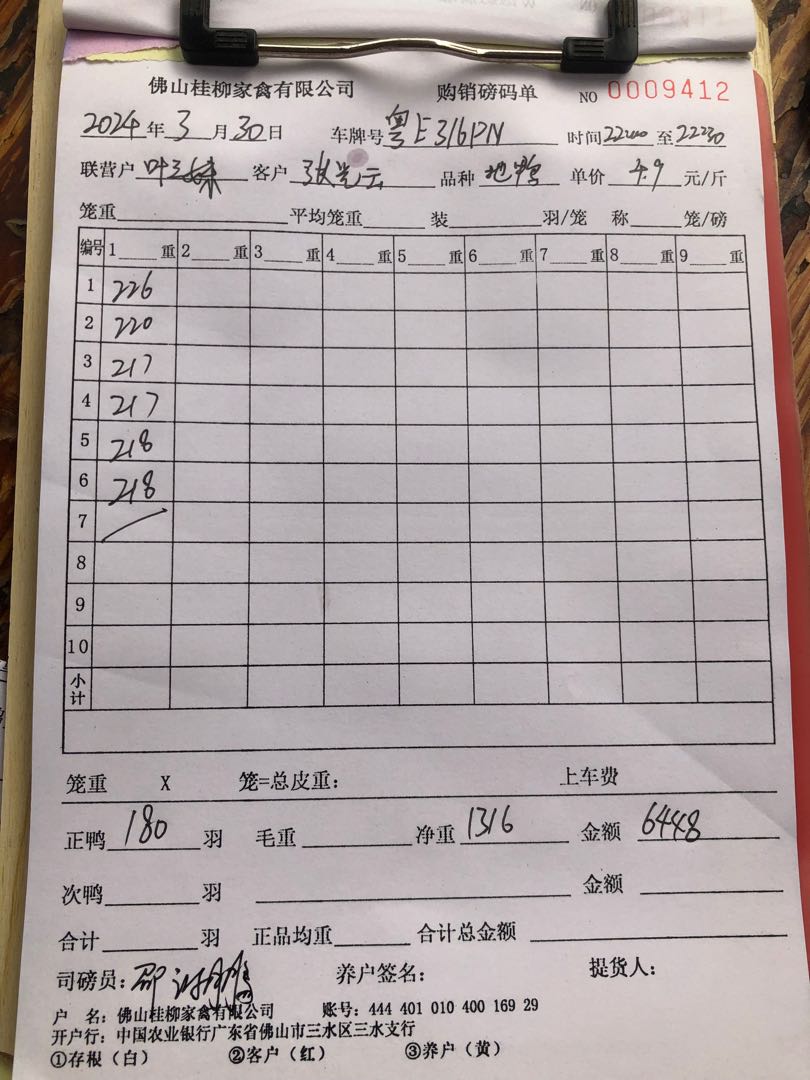 佛山桂柳家禽有限公司 购销磅码单 NO 0009412
2024年3月30日 车牌号粤E316PN 时间2200至2230
联营户 客户张光云 品种 单价4.9元/斤
笼重 平均笼重 装 羽/笼 称 笼/磅
编号 1 重 2 重 3 重 4 重 5 重 6 重 7 重 8 重 9 重
1 226
2 220
3 217
4 217
5 218
6 218
7
8
9
10
小计
笼重 X 笼=总皮重: 上车费
正鸭180羽 毛重 净重1316 金额6448
次鸭 羽 金额
合计 羽 正品均重 合计总金额
司磅员: 养户签名: 提货人:
户 名: 佛山桂柳家禽有限公司 账号: 444 401 010 400 169 29
开户行: 中国农业银行广东省佛山市三水区三水支行
①存根(白) ②客户(红) ③养户(黄)